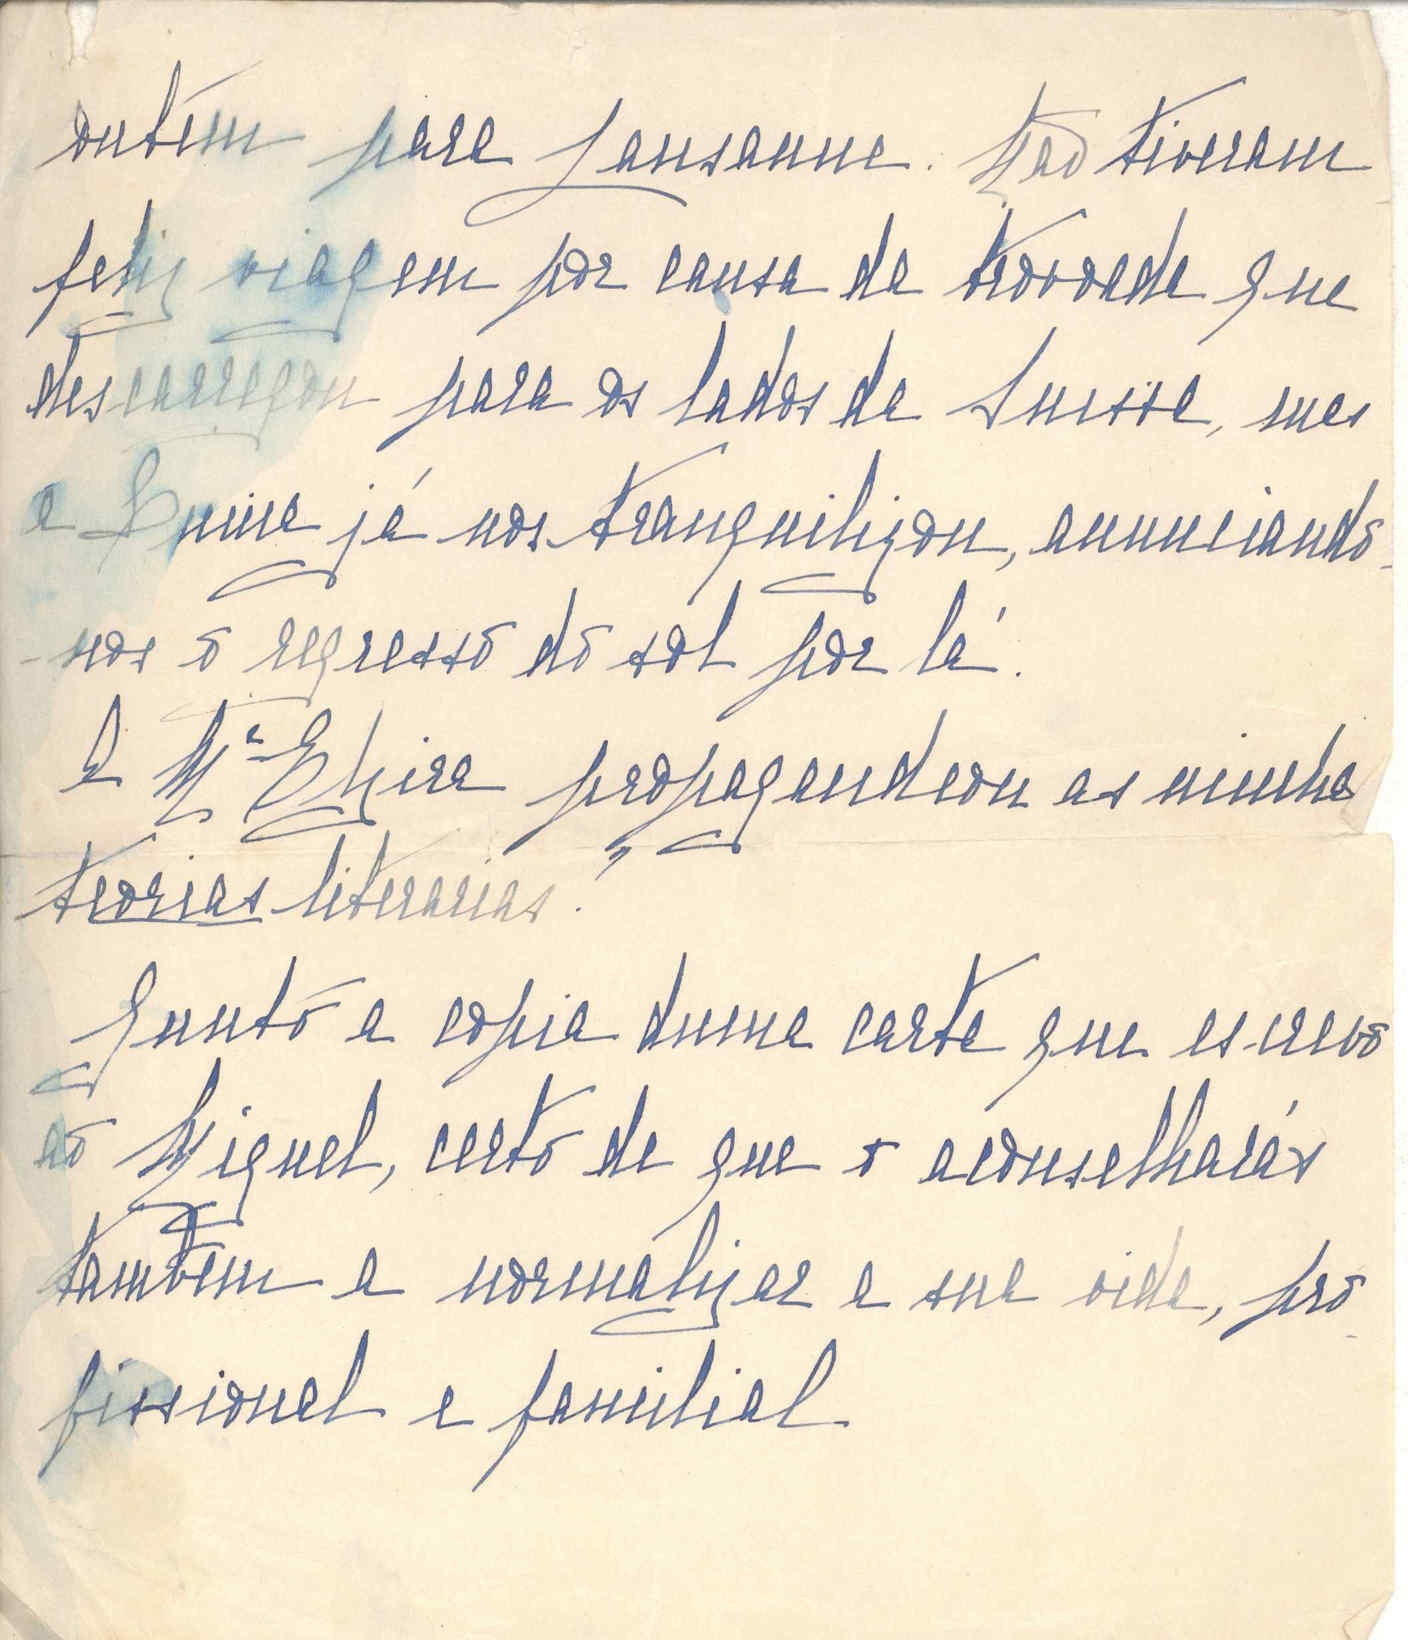 ontem para Lausanne. Não tiveram
feliz viagem por causa da trovoada que
descarregou para os lados da Suissa, mas
a já nos tranquilizou, anunciando-
-nos o regresso do sol por lá.
A Mª Elzira propagandeou as minhas
teorias literarias?!
Junto a copia duma carta que escrevo
ao Miguel, certo de que o aconselharás
tambem a normalizar a sua vida, pro-
fissional e familial